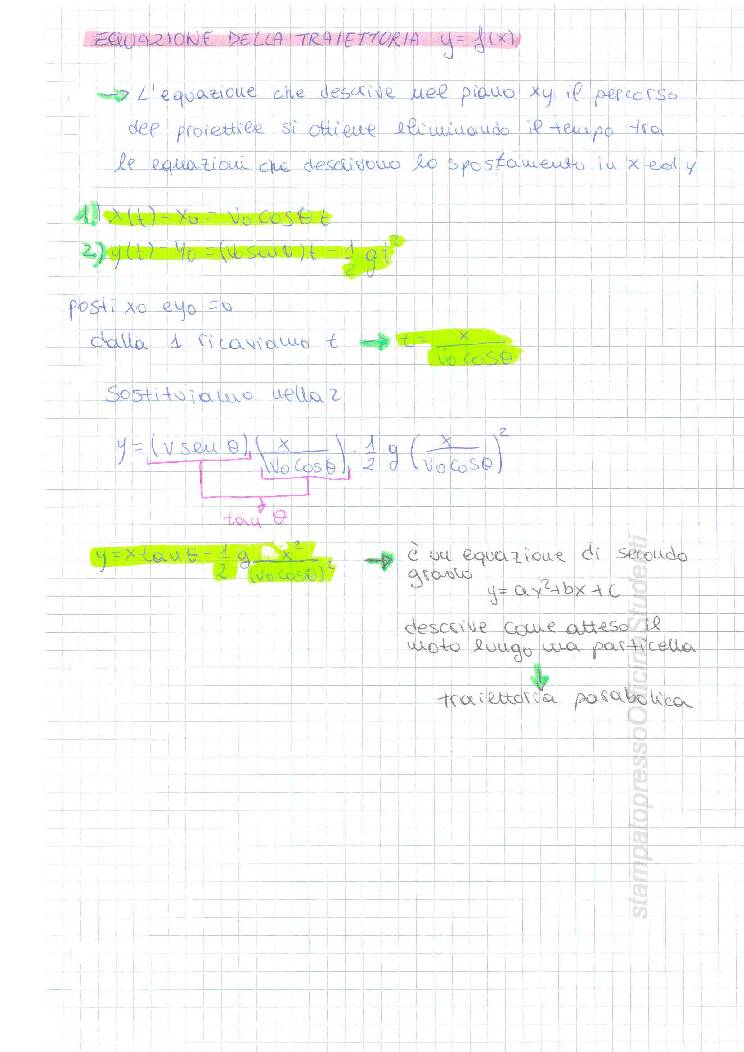 EQUAZIONE DELLA TRAIETTORIA y = f(x)
→ L'equazione che descrive nel piano xy il percorso
del proiettile si ottiene eliminando il tempo tra
le equazioni che descrivono lo spostamento in x ed y
1) x(t) - x0 = v0 cosθ t
2) y(t) - y0 = (v senθ)t - 1/2 gt²
posti x0 e y0 = 0
dalla 1 ricaviamo t → t = x/(v0 cosθ)
Sostituiamo nella 2
y = (v sen θ) (x/(v0 cosθ)) - 1/2 g (x/(v0 cosθ))²
tan θ
y = x tan θ - 1/2 g x²/(v0 cosθ)² → è un equazione di secondo
grado
y = ax² + bx + c
descrive come atteso il
moto lungo una particella
↓
traiettoria parabolica
stampatopressoOfficinaStudenti